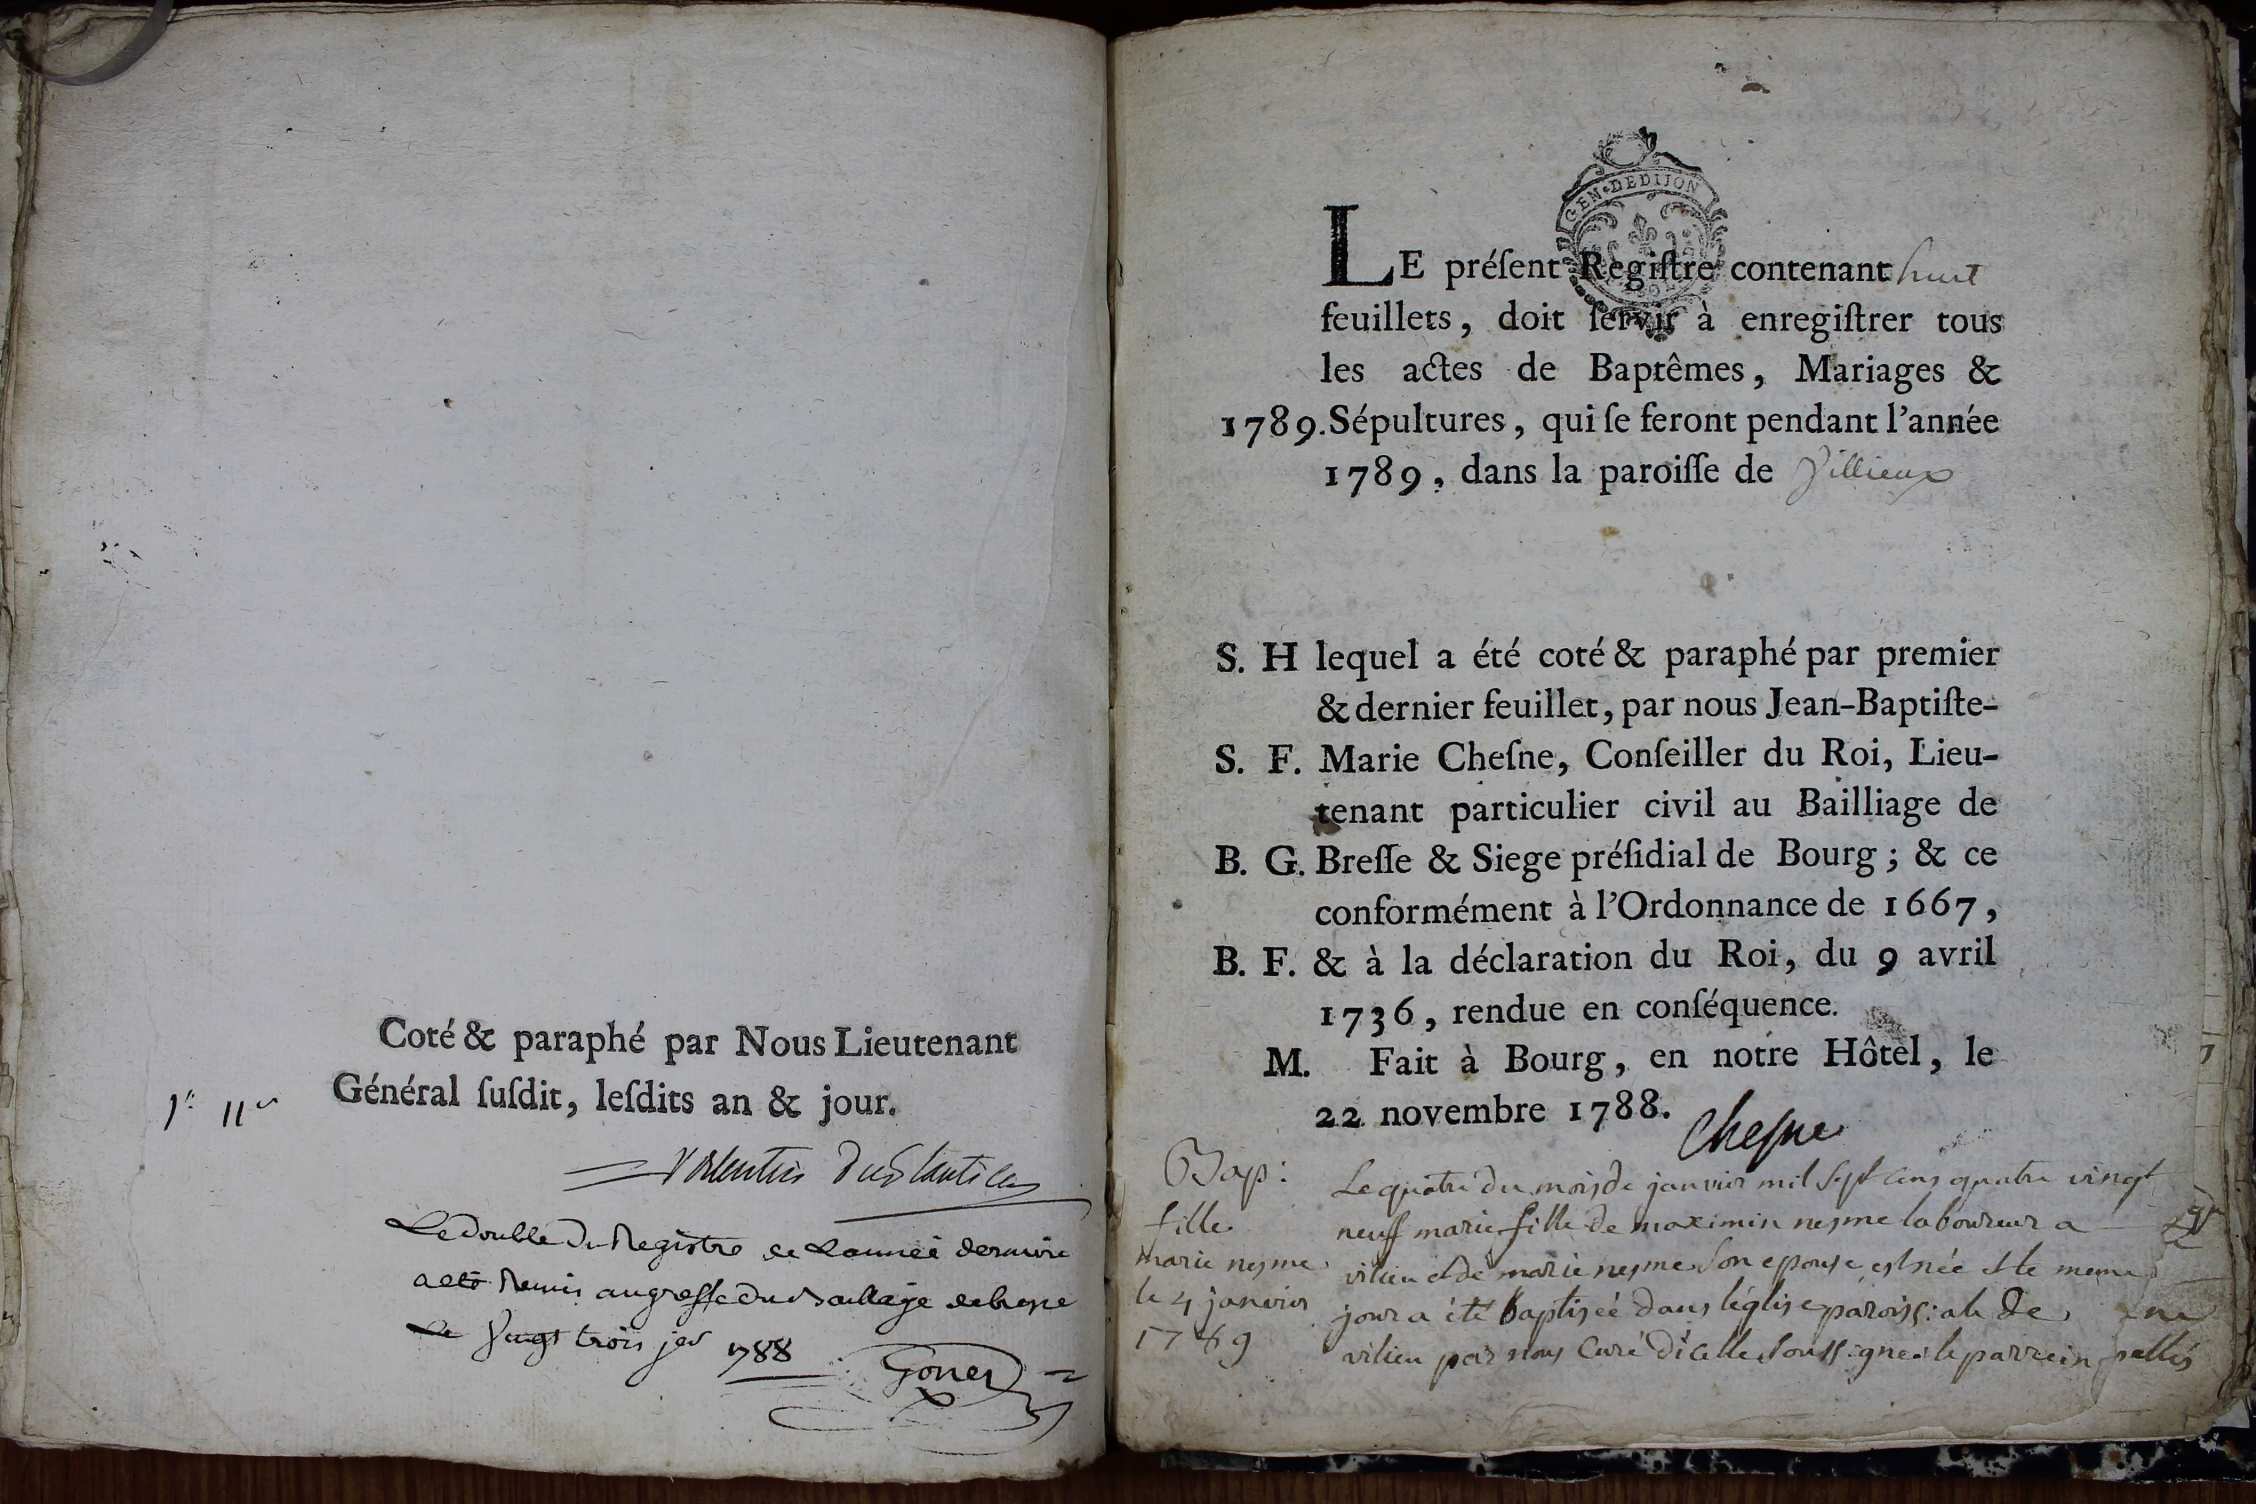 Coté & paraphé par Nous Lieutenant
Général ſuſdit, leſdits an & jour.
Le double du Registre de L'année derniere
a eté Remis au greffe du Bailliage de bresse
Le Vingt trois jer 1788
Goner
GEN·DEDIJON
LE préſent Regiſtre contenant huit
feuillets, doit ſervir à enregiſtrer tous
les actes de Baptêmes, Mariages &
1789. Sépultures, qui ſe feront pendant l'année
1789, dans la paroiſſe de Villieux
S. H lequel a été coté & paraphé par premier
& dernier feuillet, par nous Jean-Baptiſte-
S. F. Marie Cheſne, Conſeiller du Roi, Lieu-
tenant particulier civil au Bailliage de
B. G. Breſſe & Siege préſidial de Bourg ; & ce
conformément à l'Ordonnance de 1667,
B. F. & à la déclaration du Roi, du 9 avril
1736, rendue en conſéquence.
M. Fait à Bourg, en notre Hôtel, le
22 novembre 1788.
Cheſne
Bap:
fille
marie nesme
le 4 janvier
1789
Le quatre du mois de janvier mil sept cens quatre vingt
neuff marie fille de maximin nesme laboureur a
vilieu et de marie nesme son epouse est née et le meme
jour a été baptiseé dans l'église paroissiale de
vilieu par nous Curé d'icelle soussigné le parrein